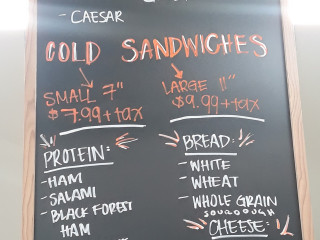 - CAESAR
COLD SANDWICHES
SMALL 7" LARGE 11"
$7.99+tax $9.99+tax
PROTEIN:
- HAM
- SALAMI
- BLACK FOREST
HAM
BREAD:
- WHITE
- WHEAT
- WHOLE GRAIN
SOURDOUGH
CHEESE: